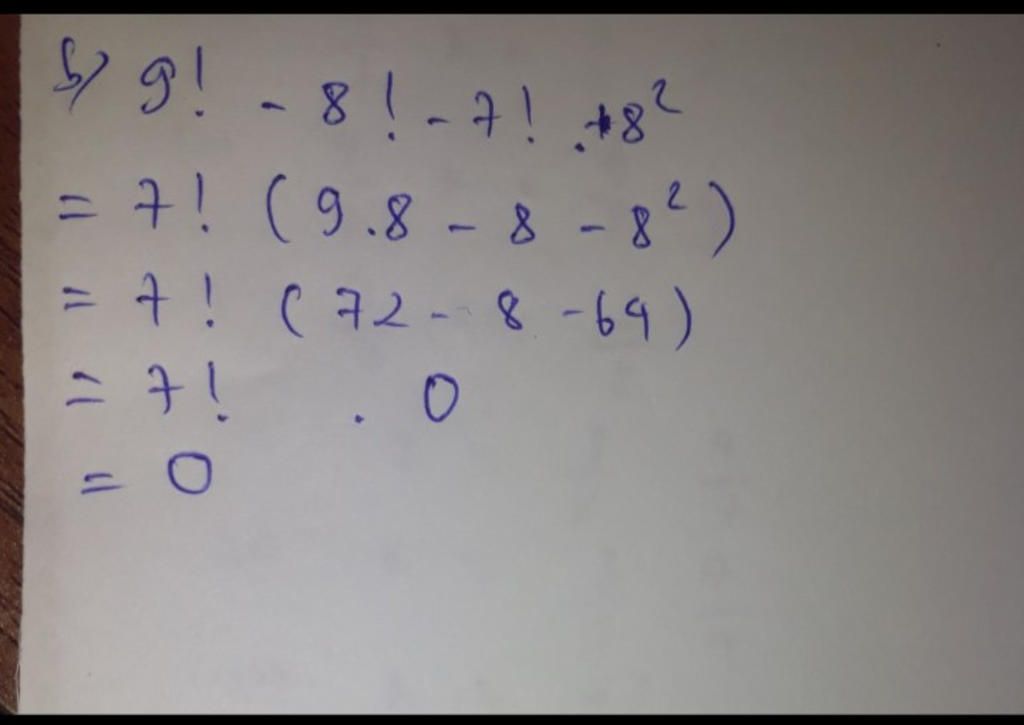 b) 9! - 8! - 7! . 8²
= 7! (9.8 - 8 - 8²)
= 7! (72 - 8 - 64)
= 7! . 0
= 0